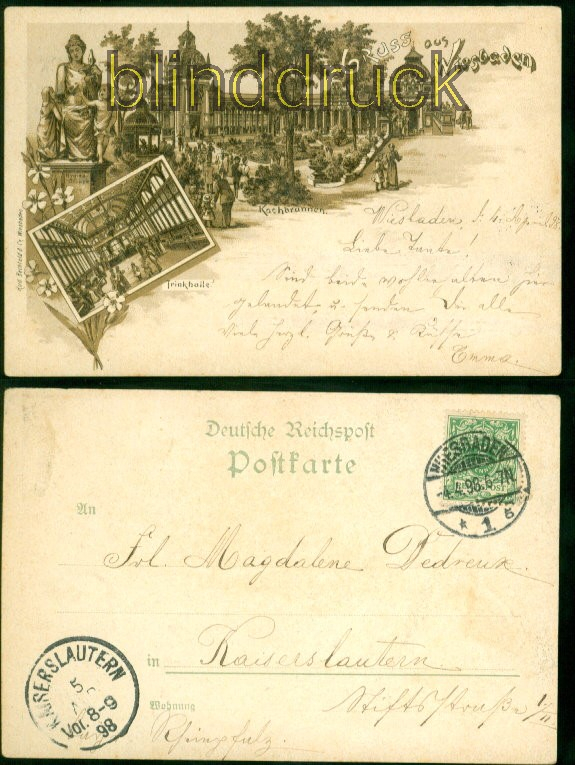 blinddruck
Gruss aus
Wiesbaden
Kochbrunnen.
Trinkhalle
Wiesbaden d. 4. April 98
Liebe Tante!
Sind beide wohlbehalten hier
gelandet u. senden Dir alle
viele herzl. Grüße & Küsse
Emma.
Deutsche Reichspost
Postkarte
An
Frl. Magdalene Dedreux.
in Kaiserslautern
Wohnung Stiftsstraße
Rheinpfalz.
WIESBADEN
4.4.98.
* 1 c
KAISERSLAUTERN
5
Vor. 8-9
98